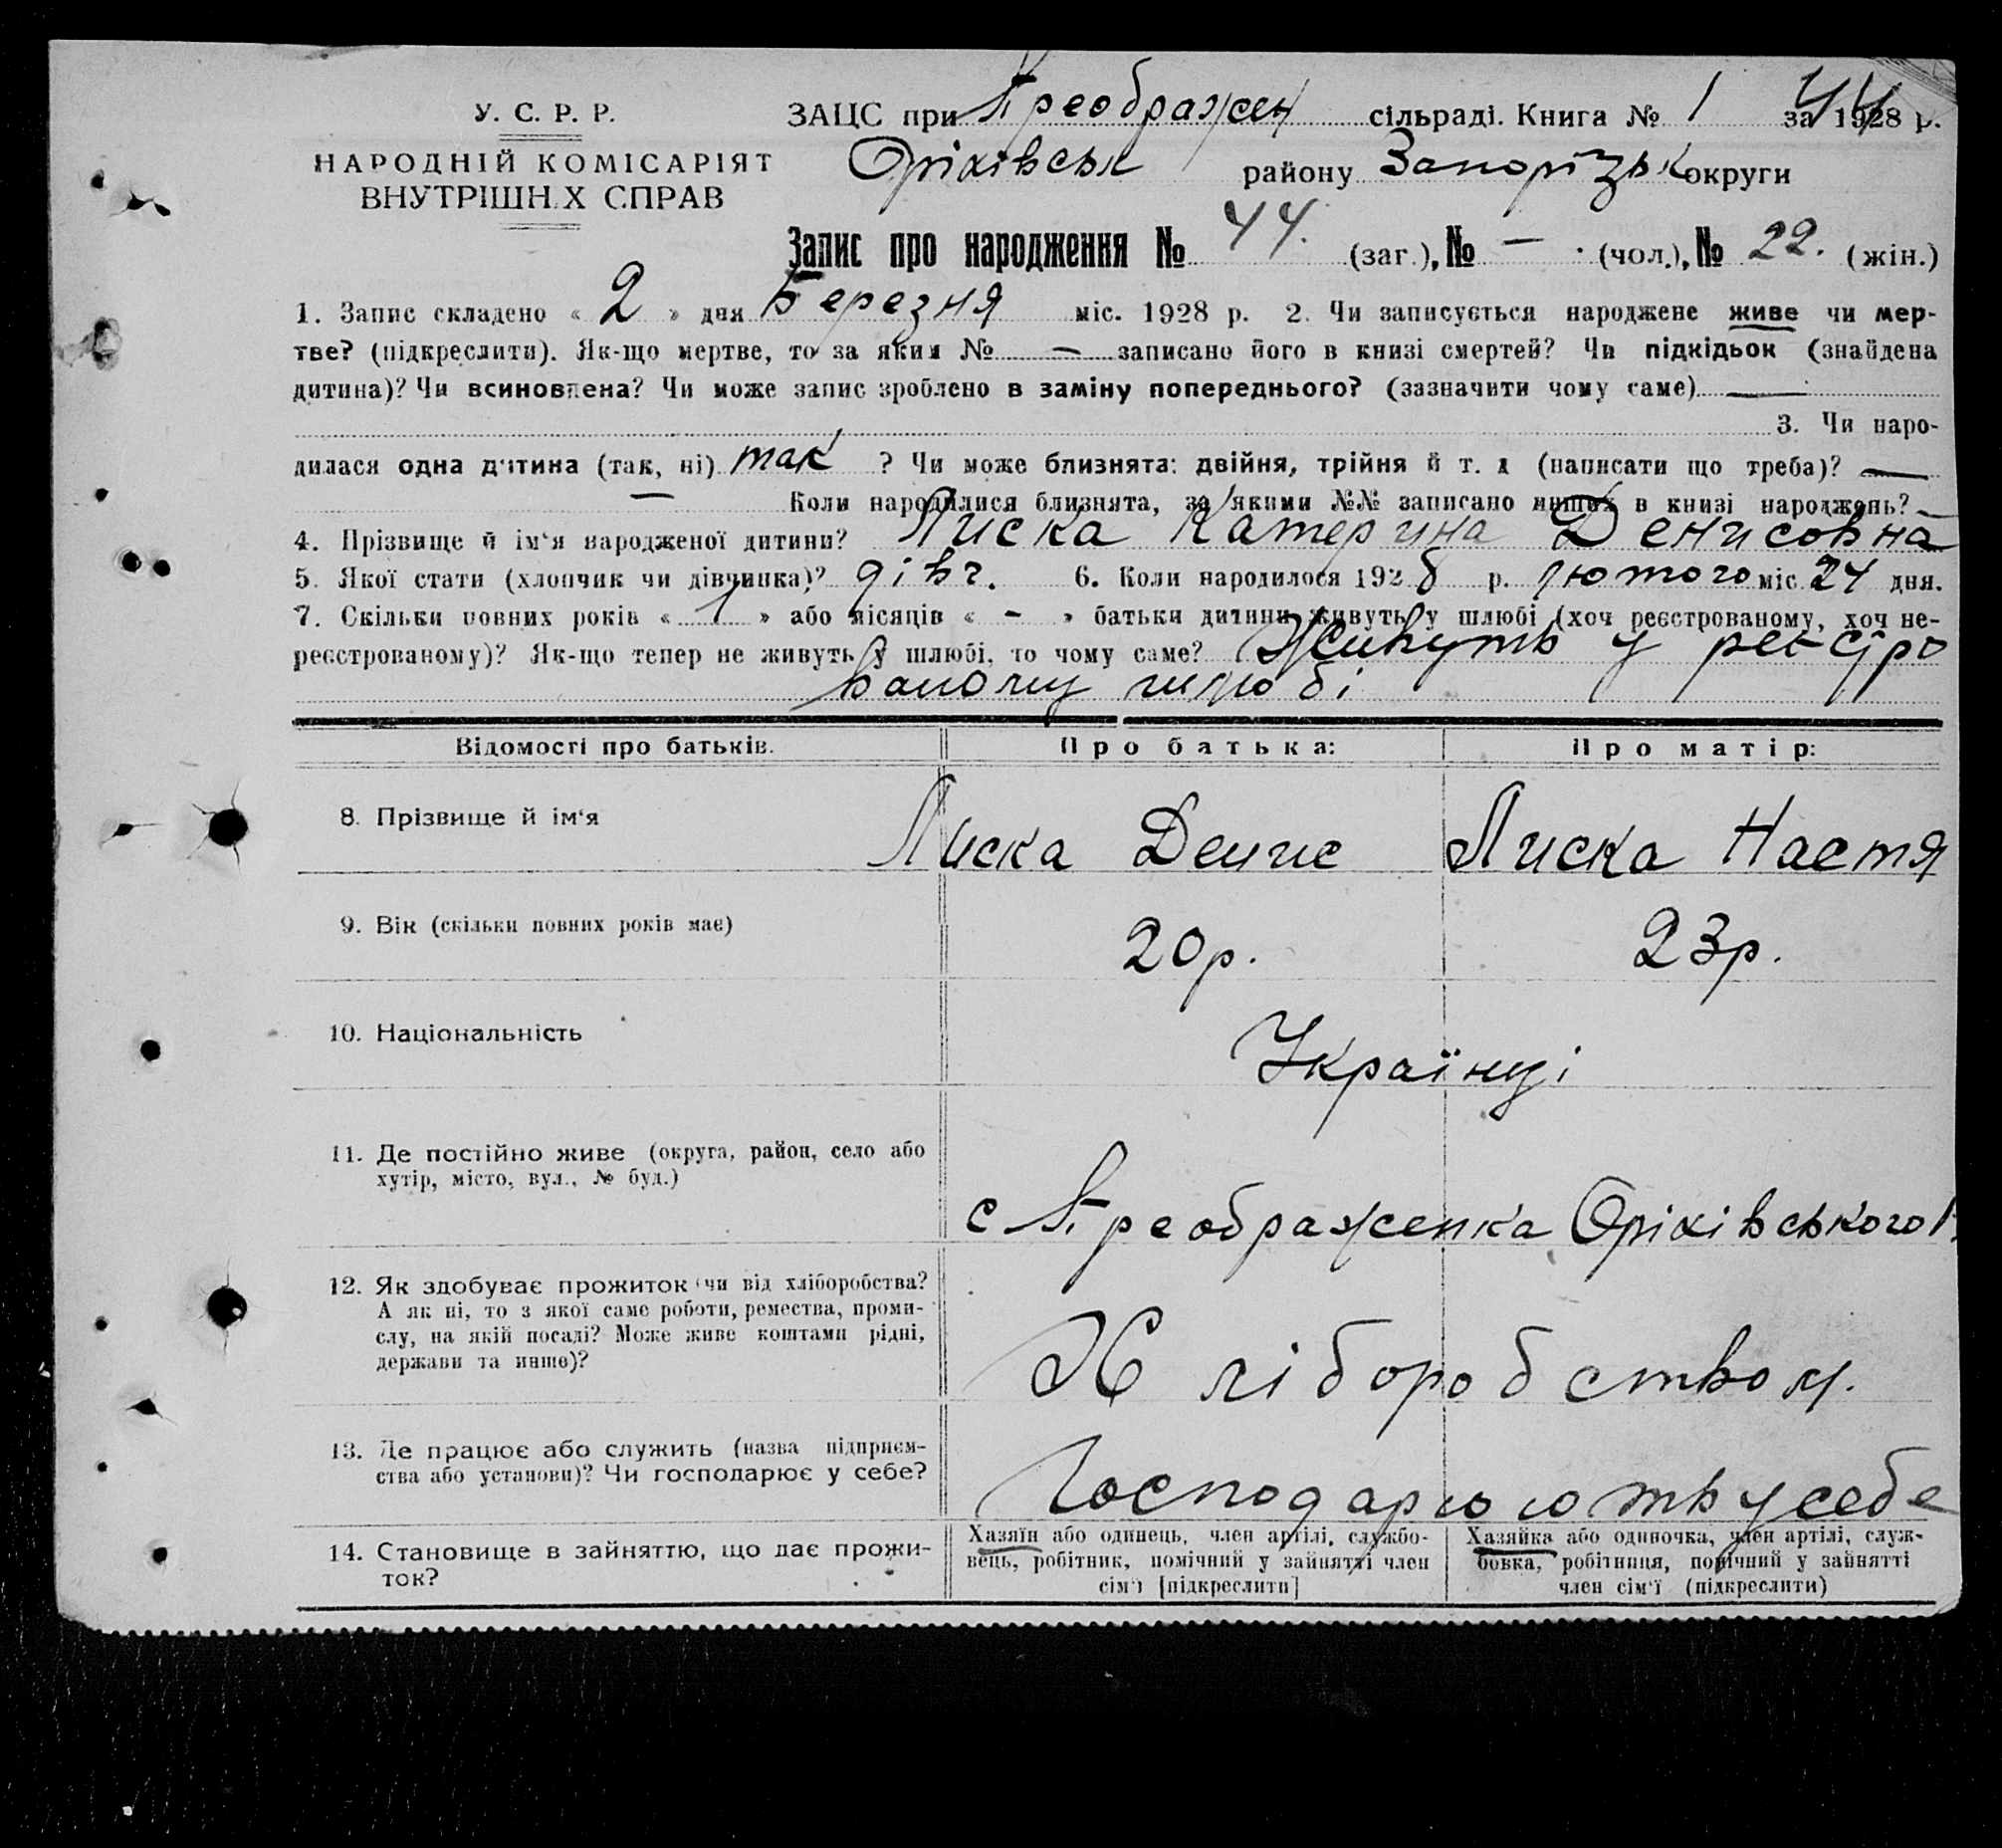 У. С. Р. Р.
НАРОДНІЙ КОМІСАРІЯТ
ВНУТРІШН.Х СПРАВ
ЗАЦС при Преображен сільраді. Книга № 1 за 1928 р.
44
Оріхівськ району Запорізьк округи
Запис про народження № 44. (заг.), № — (чол.), № 22. (жін.)
1. Запис складено « 2 » дня Березня міс. 1928 р. 2. Чи записується народжене живе чи мер-
тве? (підкреслити). Як-що мертве, то за яким № — записано його в книзі смертей? Чи підкідьок (знайдена
дитина)? Чи всиновлена? Чи може запис зроблено в заміну попереднього? (зазначити чому саме) —
3. Чи наро-
дилася одна дитина (так, ні) так ? Чи може близнята: двійня, трійня й т. д (написати що треба)? —
— Коли народилися близнята, за якими №№ записано инших в книзі народжень? —
4. Прізвище й ім'я народженої дитини? Лиска Катерина Денисовна
5. Якої стати (хлопчик чи дівчинка)? дівч. 6. Коли народилося 1928 р. лютого міс. 24 дня.
7. Скільки повних років « 1 » або місяців « - » батьки дитини живуть у шлюбі (хоч реєстрованому, хоч не-
реєстрованому)? Як-що тепер не живуть у шлюбі, то чому саме? Живуть у реєстро
ваному шлюбі
Відомості про батьків. Про батька: Про матір:
8. Прізвище й ім'я Лиска Денис Лиска Настя
9. Вік (скільки повних років має) 20р. 23р.
10. Національність Українці
11. Де постійно живе (округа, район, село або
хутір, місто, вул., № буд.)
с Преображенка Оріхівського
12. Як здобуває прожиток (чи від хліборобства?
А як ні, то з якої саме роботи, ремества, проми-
слу, на якій посаді? Може живе коштами рідні,
держави та инше)?
Хліборобством.
13. Де працює або служить (назва підприєм-
ства або установи)? Чи господарює у себе?
Господарюють у себе
14. Становище в зайняттю, що дає прожи-
ток?
Хазяїн або одинець, член артілі, службо-
вець, робітник, помічний у зайнятті член
сім'ї [підкреслити]
Хазяйка або одиночка, член артілі, служ-
бовка, робітниця, помічний у зайнятті
член сім'ї (підкреслити)